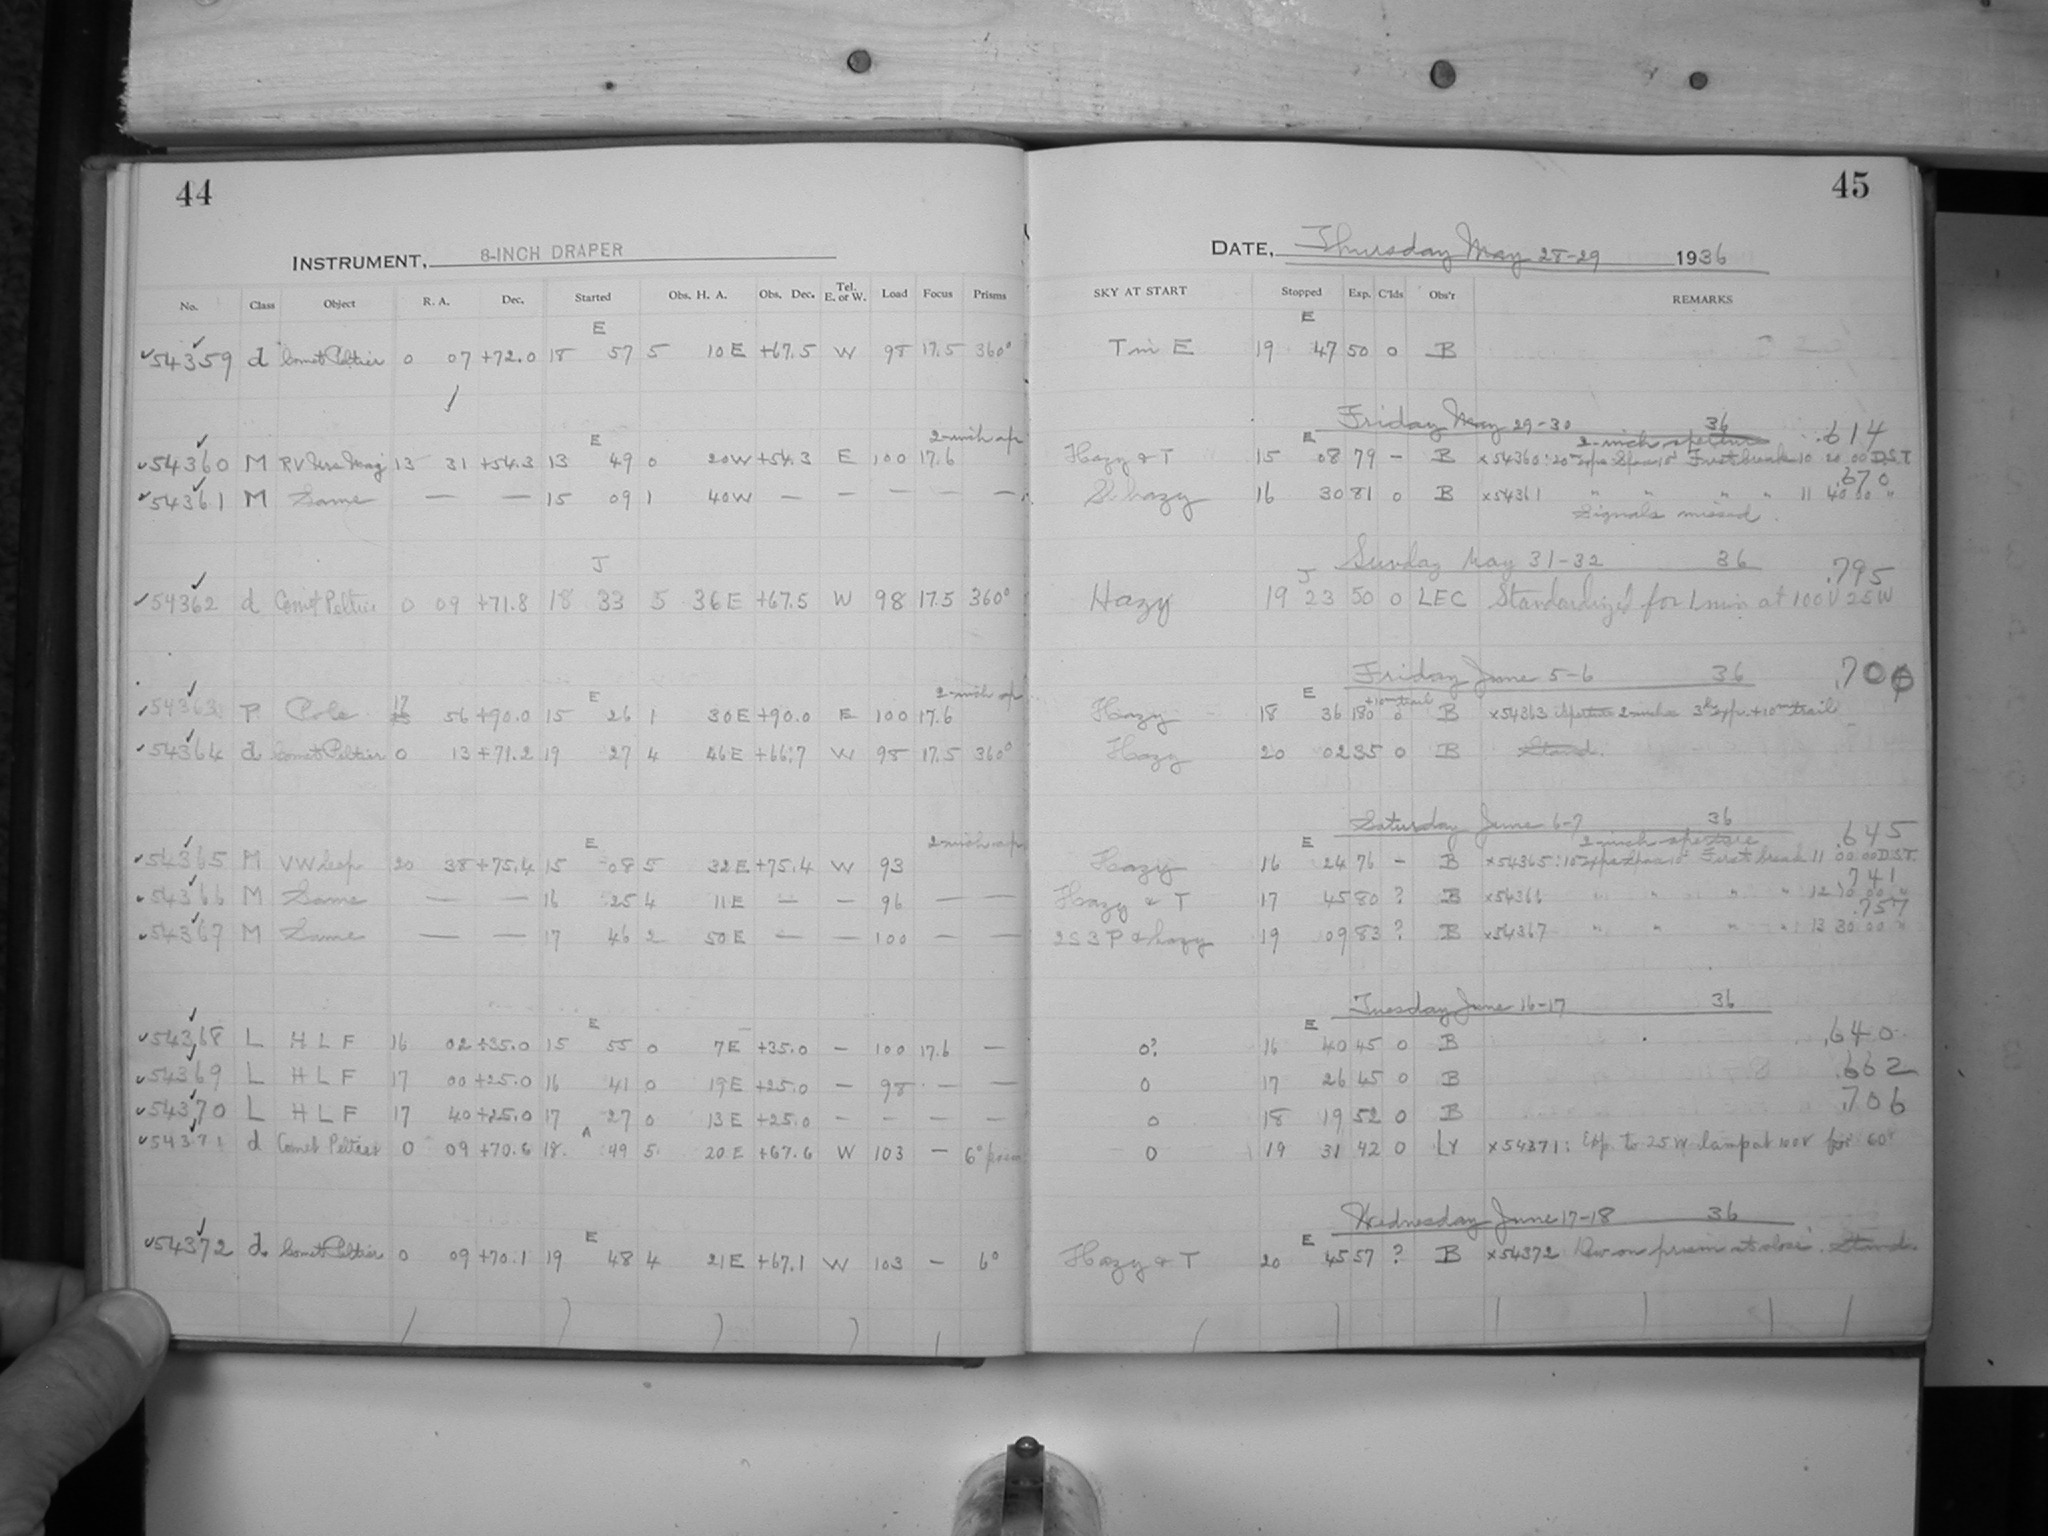 44
INSTRUMENT, 8-INCH DRAPER
No. Class Object R. A. Dec. Started Obs. H. A. Obs. Dec. Tel. E. or W. Load Focus Prisms
E
54359 d Comet Peltier 0 07 +72.0 18 57 5 10 E +67.5 W 98 17.5 360°
E 2-inch ap
54360 M RV Ursa Maj 13 31 +54.3 13 49 0 20 W +54.3 E 100 17.6
54361 M Same — — 15 09 1 40 W — — — — —
J
54362 d Comet Peltier 0 09 +71.8 18 33 5 36 E +67.5 W 98 17.5 360°
E 2-inch ap
54363 P Pole 17 56 +90.0 15 26 1 30 E +90.0 E 100 17.6
54364 d Comet Peltier 0 13 +71.2 19 27 4 46 E +66.7 W 98 17.5 360°
E 2-inch ap
54365 M VW Cep 20 38 +75.4 15 08 5 32 E +75.4 W 93
54366 M Same — — 16 25 4 11 E — — 96 — —
54367 M Same — — 17 46 2 50 E — — 100 — —
E
54368 L H L F 16 02 +35.0 15 55 0 7 E +35.0 — 100 17.6 —
54369 L H L F 17 00 +25.0 16 41 0 19 E +25.0 — 98 — —
54370 L H L F 17 40 +25.0 17 27 0 13 E +25.0 — — — —
A
54371 d Comet Peltier 0 09 +70.6 18 49 5 20 E +67.6 W 103 — 6° prism
E
54372 d Comet Peltier 0 09 +70.1 19 48 4 21 E +67.1 W 103 — 6°
45
DATE, Thursday May 28-29 1936
SKY AT START Stopped Exp. C'lds Obs'r REMARKS
E
T in E 19 47 50 0 B
Friday May 29-30 36 .614
E 2-inch aperture
Hazy & T 15 08 79 — B x54360: 20 First break 10 20 00 D.S.T.
.670
S. hazy 16 30 81 0 B x54361 " " " " 11 40 00 "
Signals missed.
Sunday May 31-32 36 .795
J
Hazy 19 23 50 0 LEC Standardized for 1 min at 100V 25W
Friday June 5-6 36 .706
E +10m trail
Hazy 18 36 180 0 B x54363 aperture 2 inches 3h exp. +10m trail
Hazy 20 02 35 0 B Stand.
Saturday June 6-7 36 .645
E 2-inch aperture
Hazy 16 24 76 — B x54365: 10 First break 11 00 00 D.S.T.
.741
Hazy & T 17 45 80 ? B x54366 " " " " 12 10 00 "
.757
2 S 3 P & hazy 19 09 83 ? B x54367 " " " " 13 30 00 "
Tuesday June 16-17 36
E .640
0? 16 40 45 0 B
.662
0 17 26 45 0 B
.706
0 18 19 52 0 B
0 19 31 42 0 LY x54371: Exp. to 25 W lamp at 100V for 60s
Wednesday June 17-18 36
E
Hazy & T 20 45 57 ? B x54372 Dew on prism at close. Stand.